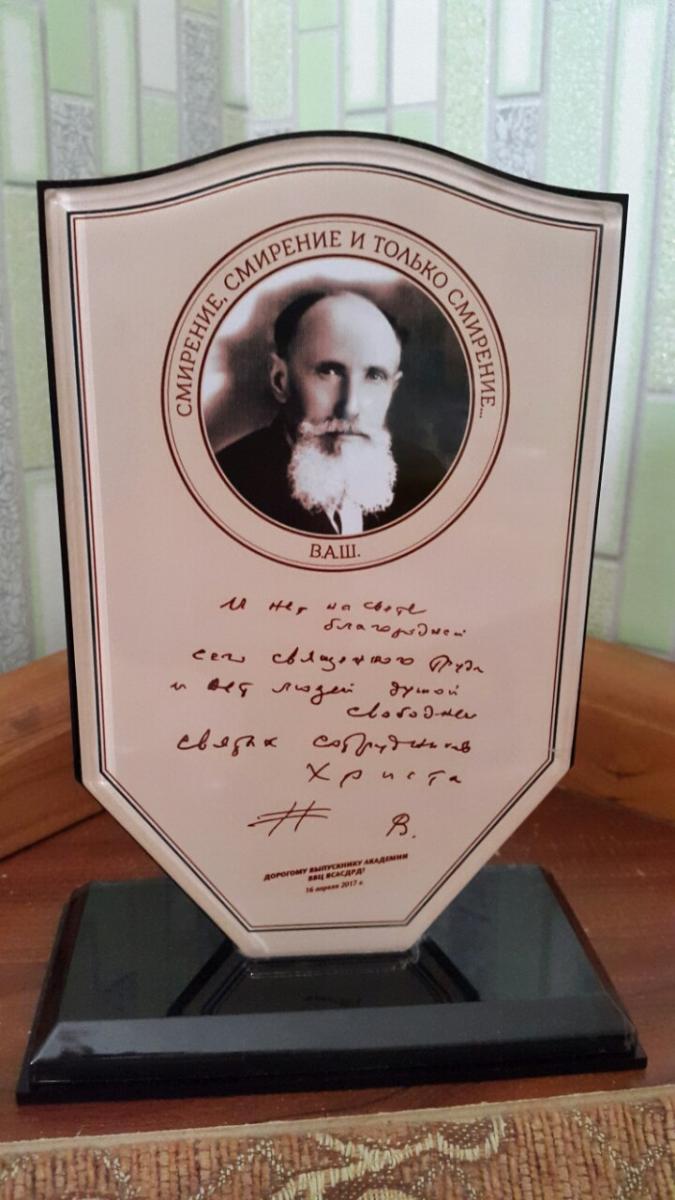 СМИРЕНИЕ, СМИРЕНИЕ И ТОЛЬКО СМИРЕНИЕ...
В.А.Ш.
И нет на свете
благородней
сего священного труда
и нет людей душой
свободнее
святых сотрудников
Христа
В.
ДОРОГОМУ ВЫПУСКНИКУ АКАДЕМИИ
ВВЦ ВСАСДРД!
16 апреля 2017 г.